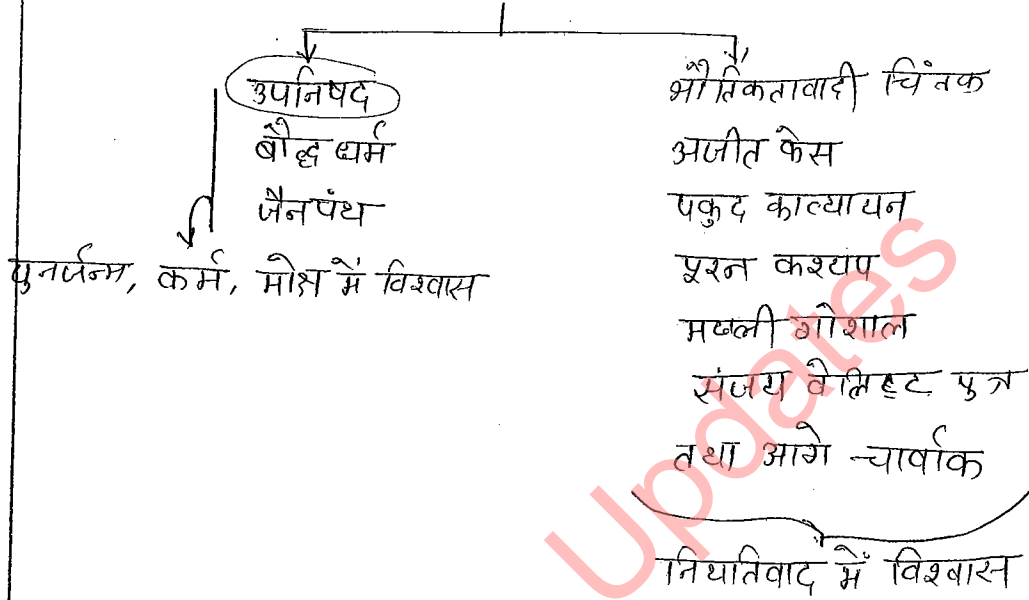 उपनिषद
बौद्ध धर्म
जैनपंथ
पुनर्जन्म, कर्म, मोक्ष में विश्वास
भौतिकतावादी चिंतक
अजीत केस
पकुद कात्यायन
पूरन कश्यप
मखली गोशाल
संजय वेलिहट पुत्र
तथा आगे चार्वाक
नियतिवाद में विश्वास
Updates